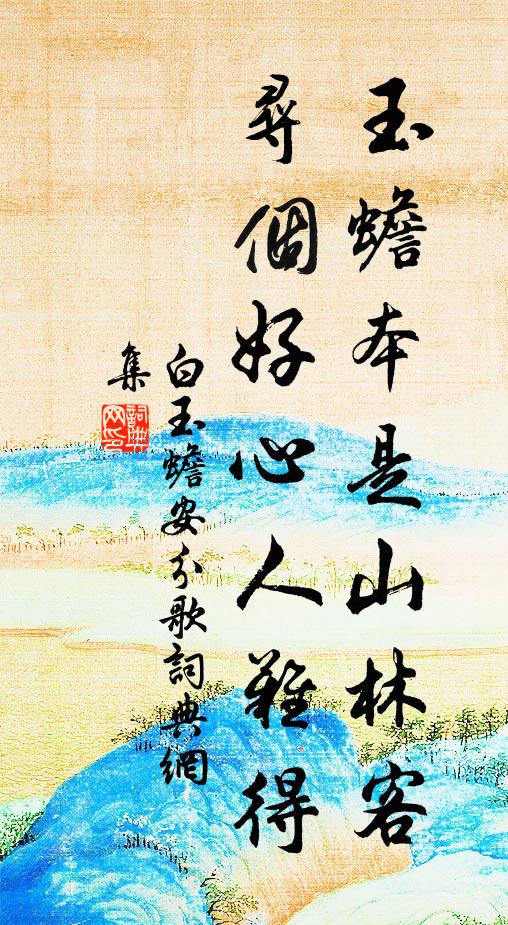 玉蟾本是山林客
尋個好心人難得
白玉蟾安分歌詞典網
集
詞典網印